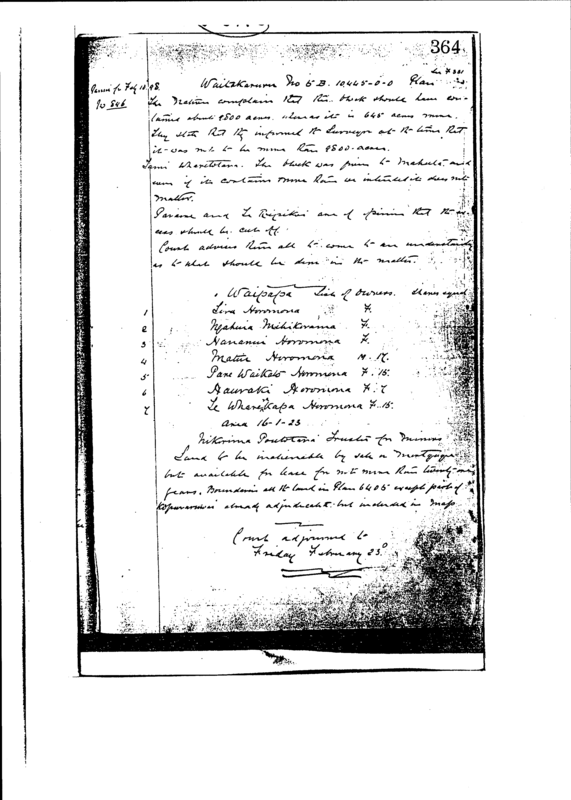 364
Waitakaruru No 5B. 10445-0-0 Plan
The Natives complain that this block should have con-
tained about 9800 acres whereas it is 645 acres more.
They state that they informed the Surveyor at the time that
it was not to be more than 9800 acres.
Tami Wharetotara. The block was given to and
even if it contains more than we intended it does not
matter.
and Te are of opinion that the ex-
cess should be cut off.
Court advises them all to come to an understanding
as to what should be done in the matter.
Waipapa List of Owners. Shares equal
1 Horomona F.
2 Ngahuia F.
3 Horomona F.
4 Matiu Horomona M. 17.
5 Pare Waikato Horomona F. 15.
6 Hauraki Horomona F. 7
7 Te Horomona F. 15.
Area 16-1-23
Nikorima Poutotara Trustee for Minors
Land to be inalienable by sale or Mortgage
but available for lease for not more than twenty-one
years. Boundaries all the land in Plan 6405 except part of
already adjudicated but included in map
Court adjourned to
Friday February 23d